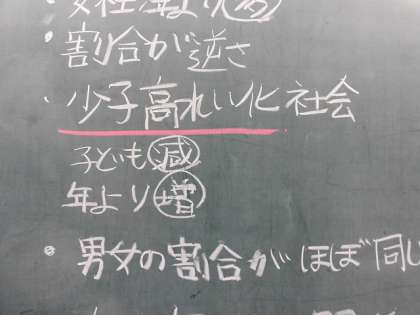 ・割合が逆さ
・少子高れい化社会
子ども減
年より増
・男女の割合がほぼ同じ